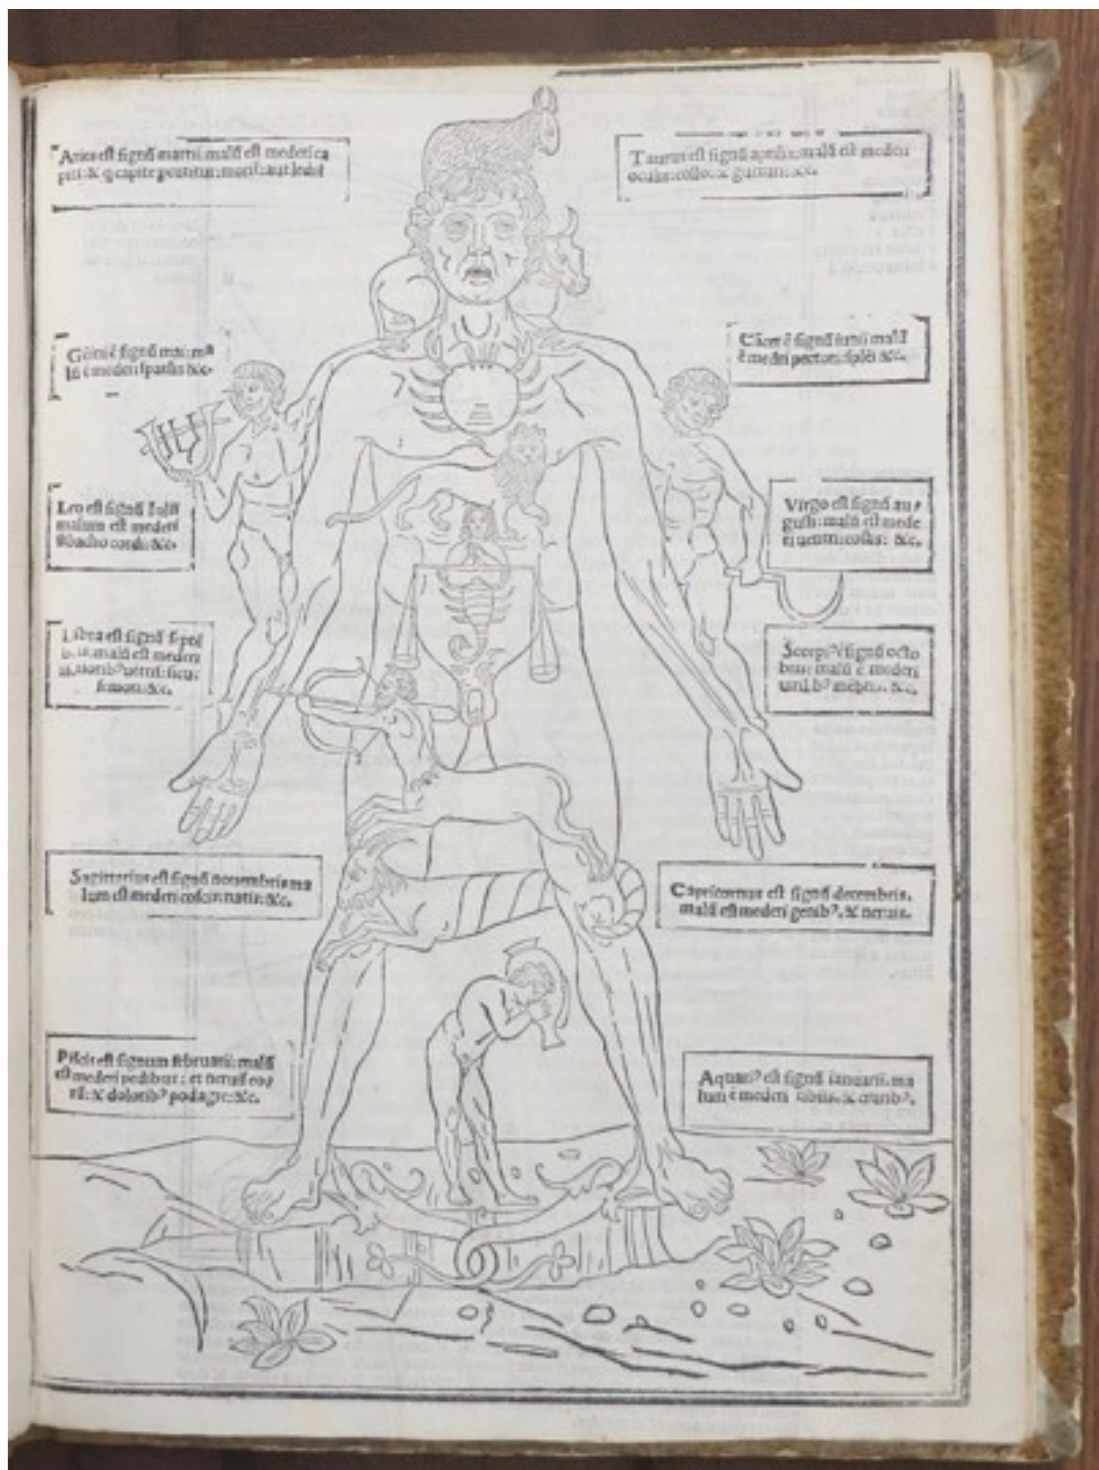 Aries est signū martii: malū est mederi ca
piti: & q capite
Taurus est signū aprilis: malū est mederi
oculis: collo: & gutturi: &c.
Gēini ē signū maii: ma
lū ē mederi spatulis &c.
Cācer ē signū iunii malū
ē mederi pectori: spleni &c.
Leo est signū Iulii
malum est mederi
stōacho cordi: &c.
Virgo est signū au
gusti: malū est mede
ri uentri: costis: &c.
Libra est signū
malū est mederi
&c.
Scorpiꝰ ē signū octo
bris: malū ē mederi
&c.
Sagittarius est signū nouembris ma
lum est mederi coscis: natis: &c.
Capricornus est signū decembris.
malū est mederi genibꝰ. & neruis.
Piscis est signum februarii: malū
est mederi pedibus: et neruis
& doloribꝰ podagre: &c.
Aquariꝰ est signū ianuarii. ma
lum ē mederi tibiis. & cruribꝰ.